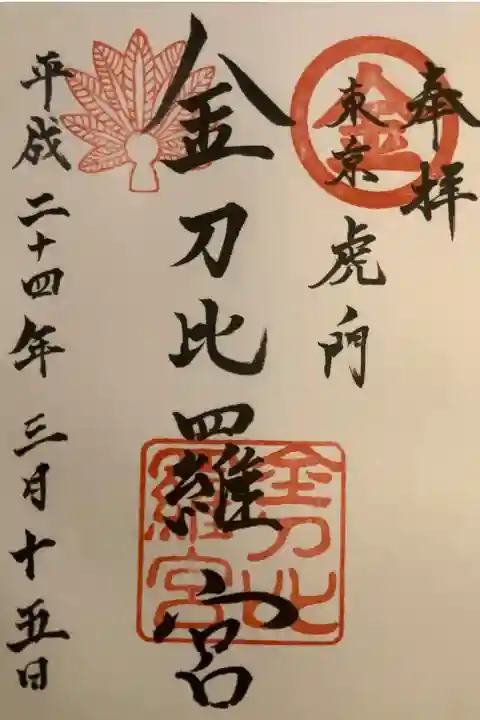 奉拝
金
東京
虎門
金刀比羅宮
金刀比
羅宮
平成二十四年三月十五日